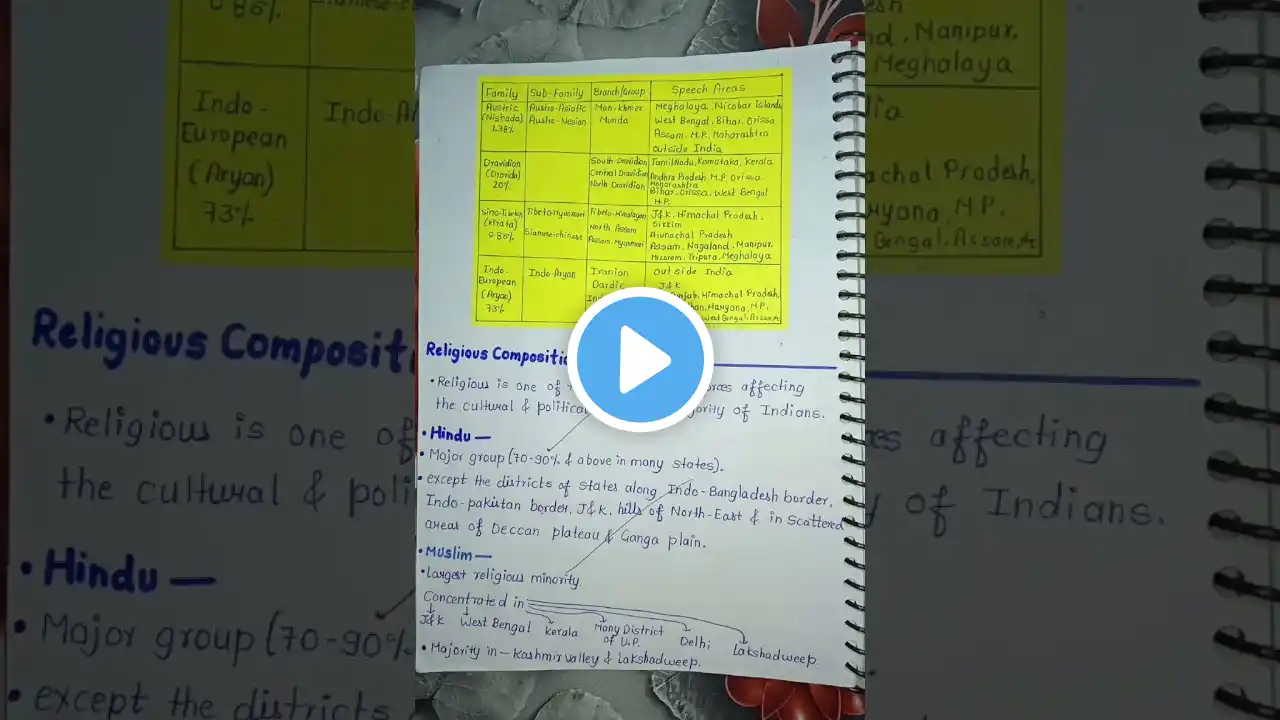 Family Sub-Family Branch/Group Speech Areas
Austric Austro-Asiatic Mon-Khmer Meghalaya, Nicobar islands
(Nishada) Austro-Nesian Munda West Bengal, Bihar, Orissa
1.38% Assam, M.P., Maharashtra
outside India
Dravidian South Dravidian Tamil Nadu, Karnataka, Kerala
(Dravida) Central Dravidian Andhra Pradesh M.P. Orissa
20% North Dravidian Maharashtra
Bihar, Orissa, West Bengal
M.P.
Sino-Tibetan Tibeto-Myanmari Tibeto-Himalayan J&K, Himachal Pradesh,
(Kirata) Siamese-chinese North Assam Sikkim
0.85% Assam, Myanmari Arunachal Pradesh
Assam, Nagaland, Manipur,
Mizoram, Tripura, Meghalaya
Indo- Indo-Aryan Iranian out side India
European Dardic J&K
(Aryan) Himachal Pradesh,
73% Haryana, M.P.
West Bengal, Assam
Religious Compositi
• Religious is one of affecting
the cultural & of Indians.
• Hindu —
• Major group (70-90% & above in many states).
• except the districts of states along Indo-Bangladesh border,
Indo-pakistan border, J&K, hills of North-East & in scattered
areas of Deccan plateau & Ganga plain.
• Muslim —
• Largest religious minority.
Concentrated in
J&K West Bengal kerala Many District Delhi Lakshadweep.
of U.P.
• Majority in — Kashmir valley & Lakshadweep.